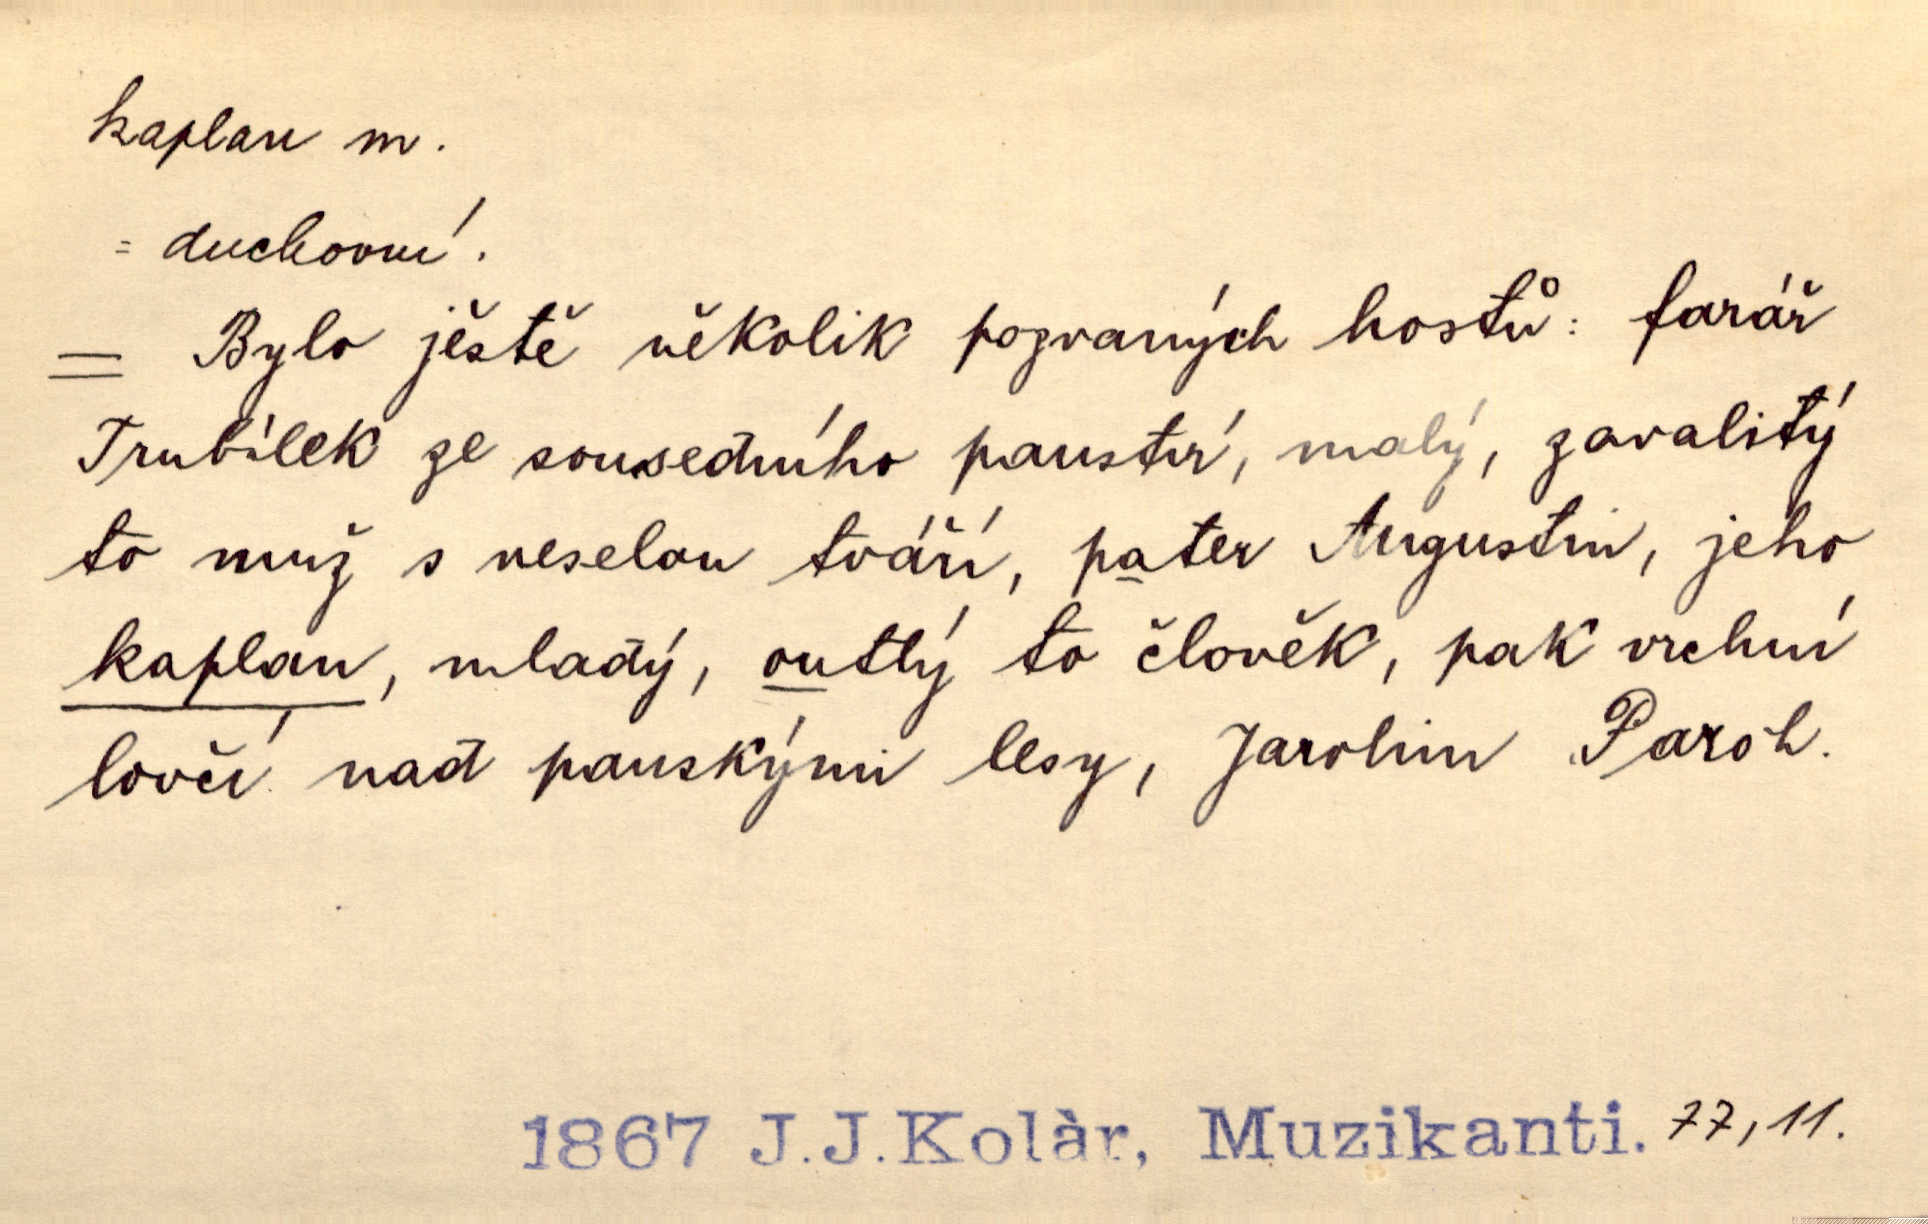 kaplan m.
= duchovní.
= Bylo ještě několik pozvaných hostů: farář
Trubílek ze sousedního panství, malý, zavalitý
to muž s veselou tváří, pater Augustin, jeho
kaplan, mladý, outlý to člověk, pak vrchní
lovčí nad panskými lesy, Jarolim Paroh.
1867 J.J.Kolàr, Muzikanti. 77, 11.